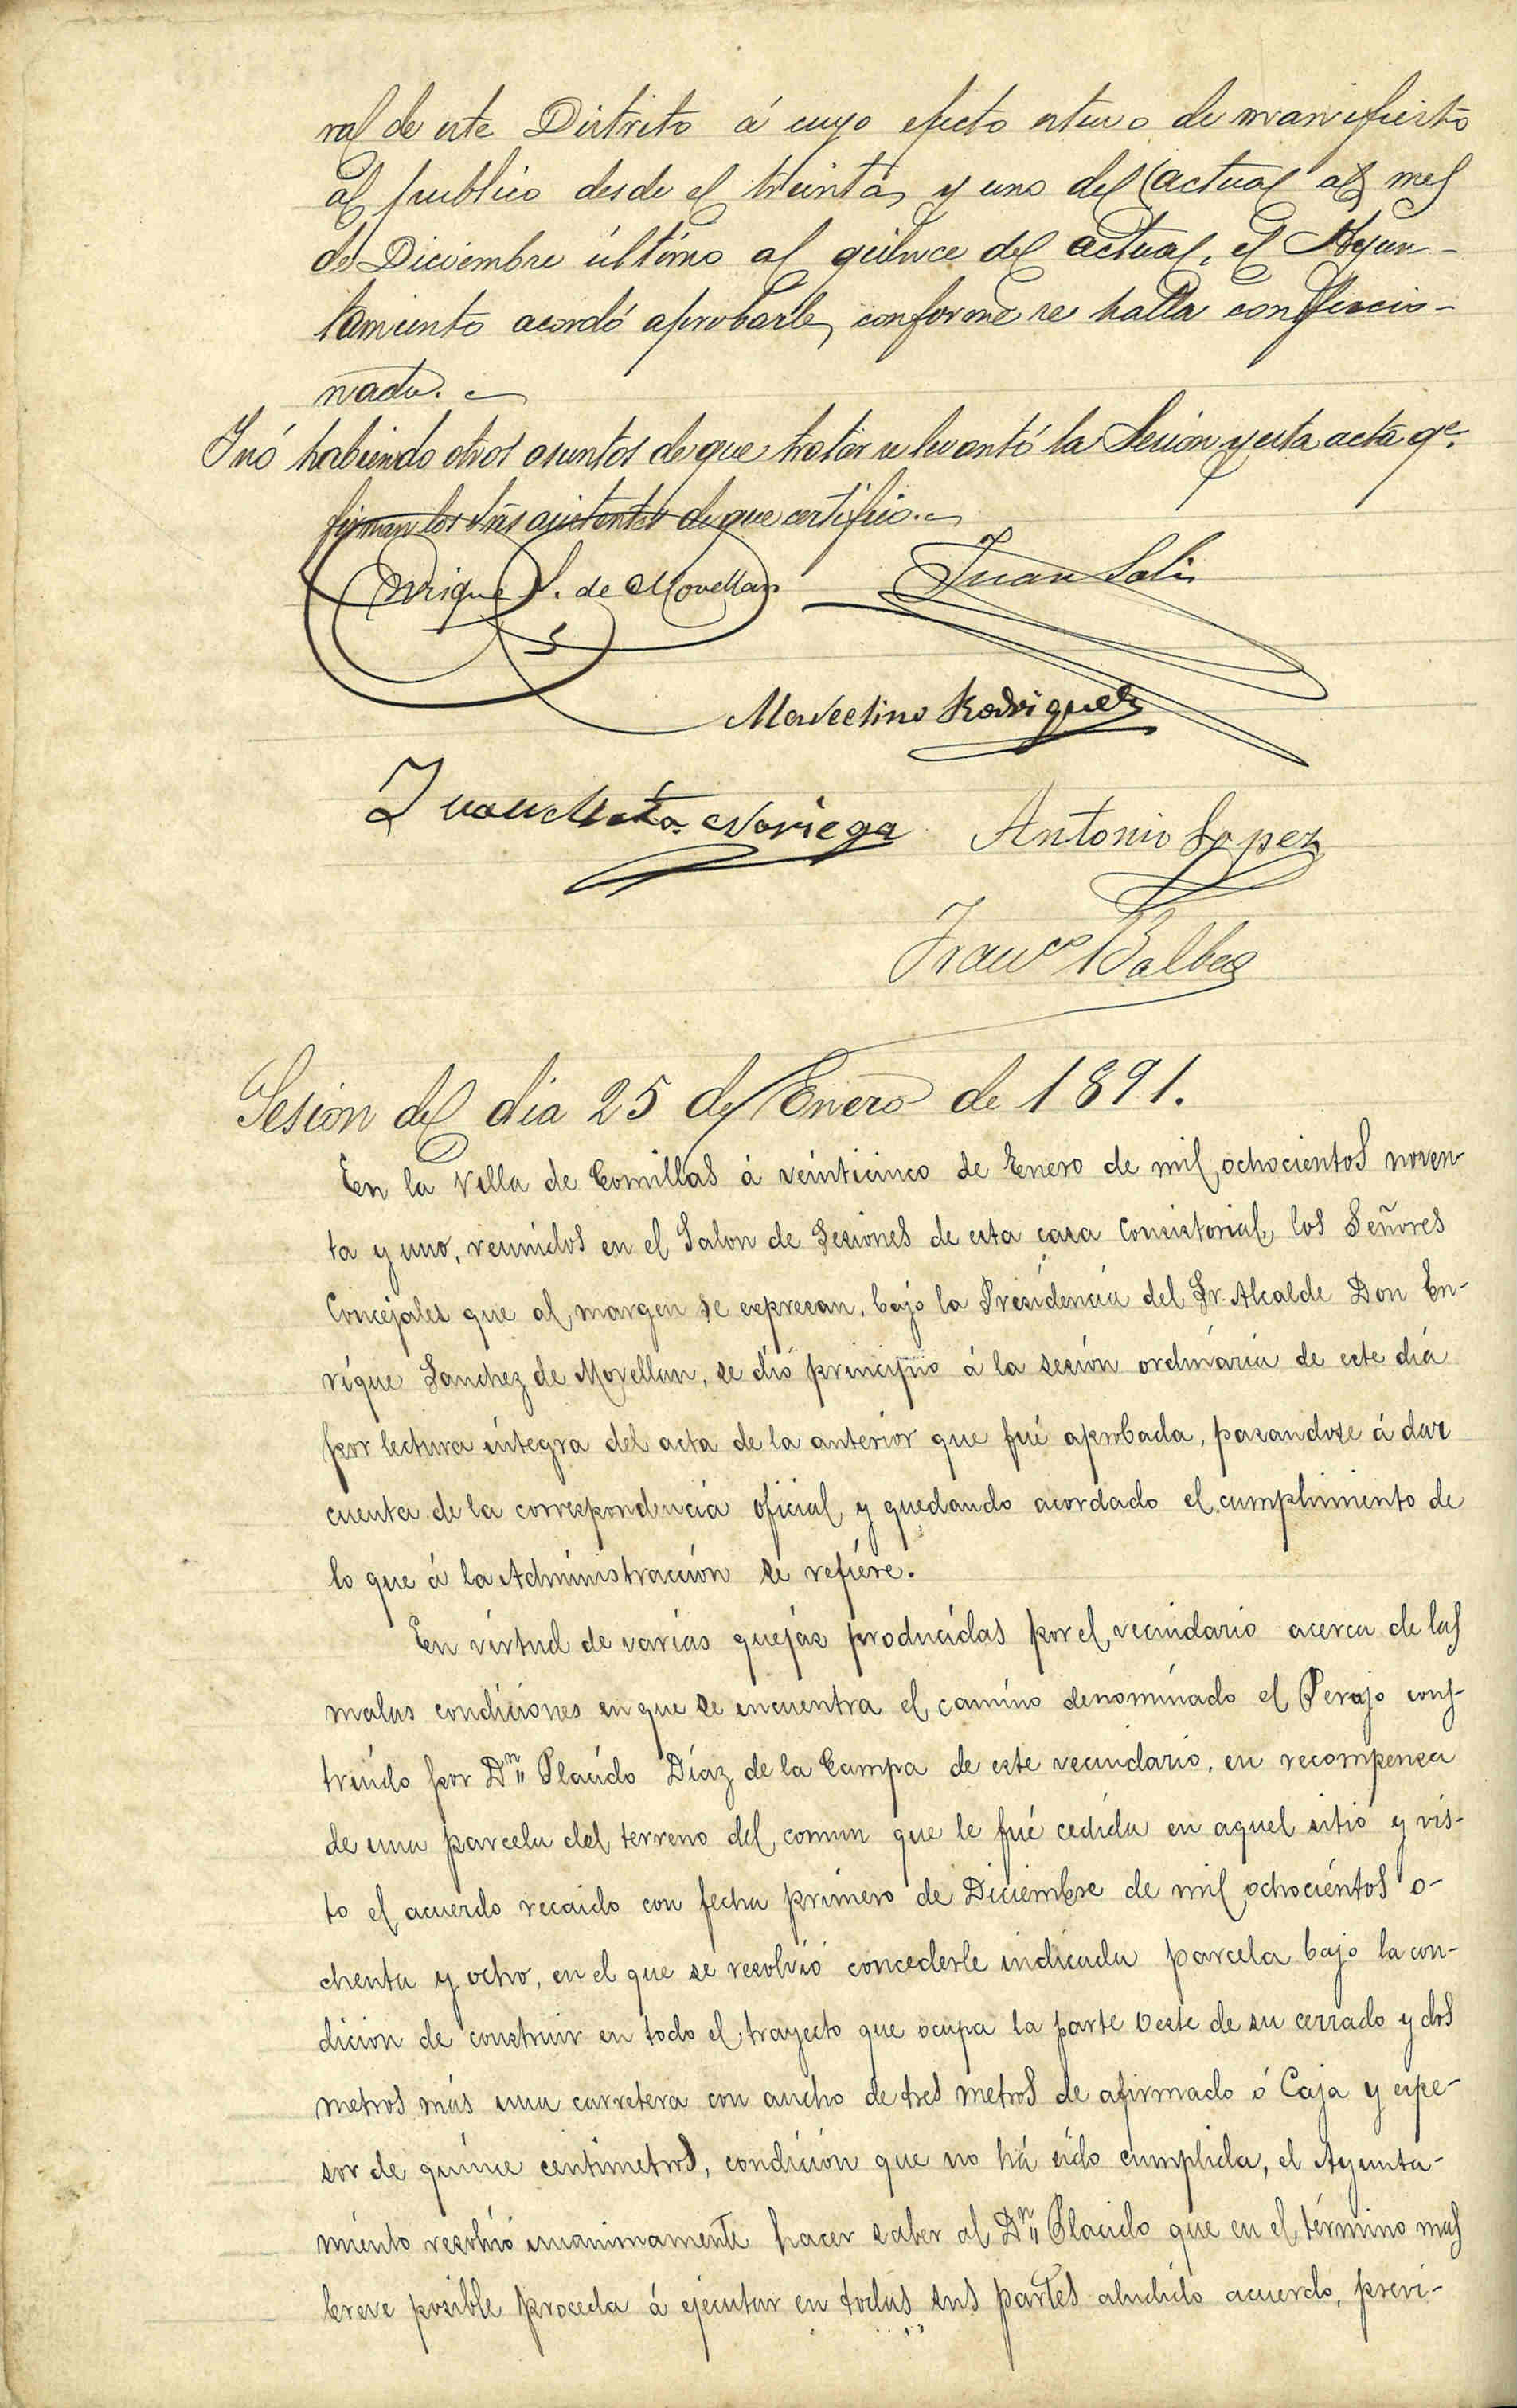 ral de este Distrito á cuyo efecto estuvo de manifiesto
al publico desde el treinta y uno del actual al mes
de Diciembre último al quince del actual, el Ayun-
tamiento acordó aprobarle, conforme se halla confeccio-
nado.
Y nó habiendo otros asuntos de que tratar se levantó la Sesion y esta acta qe.
firman los Sres asistentes de que certifico.
Enrique S. de Movellan Juan Solis
Marcelino Rodriguez
Juan Noriega Antonio Lopez
Franco Balbas
Sesion del dia 25 de Enero de 1891.
En la Villa de Comillas á veinticinco de Enero de mil ochocientos noven-
ta y uno, reunidos en el Salon de Sesiones de esta casa Consistorial, los Señores
Concejales que al margen se expresan, bajo la Presidencia del Sr. Alcalde Don En-
rique Sanchez de Movellan, se dió principio á la sesión ordinaria de este dia
por lectura integra del acta de la anterior que fué aprobada, pasandose á dar
cuenta de la correspondencia oficial y quedando acordado el cumplimiento de
lo que á la Administracción se refiere.
En virtud de varias quejas producidas por el vecindario acerca de las
malas condiciones en que se encuentra el camino denominado el Perajo cons-
truido por Dn Placido Díaz de la Campa de este vecindario, en recompensa
de una parcela del terreno del comun que le fué cedida en aquel sitio y vis-
to el acuerdo recaido con fecha primero de Diciembre de mil ochocientos o-
chenta y ocho, en el que se resolvió concederle indicada parcela bajo la con-
dicion de construir en todo el trayecto que ocupa la parte Oeste de su cerrado y dos
metros más una carretera con ancho de tres metros de afirmado ó Caja y espe-
sor de quince centimetros, condición que no há sido cumplida, el Ayunta-
miento resolvió unanimamente hacer saber al Dn Placido que en el término mas
breve posible proceda á ejecutar en todas sus partes aludido acuerdo, previ-